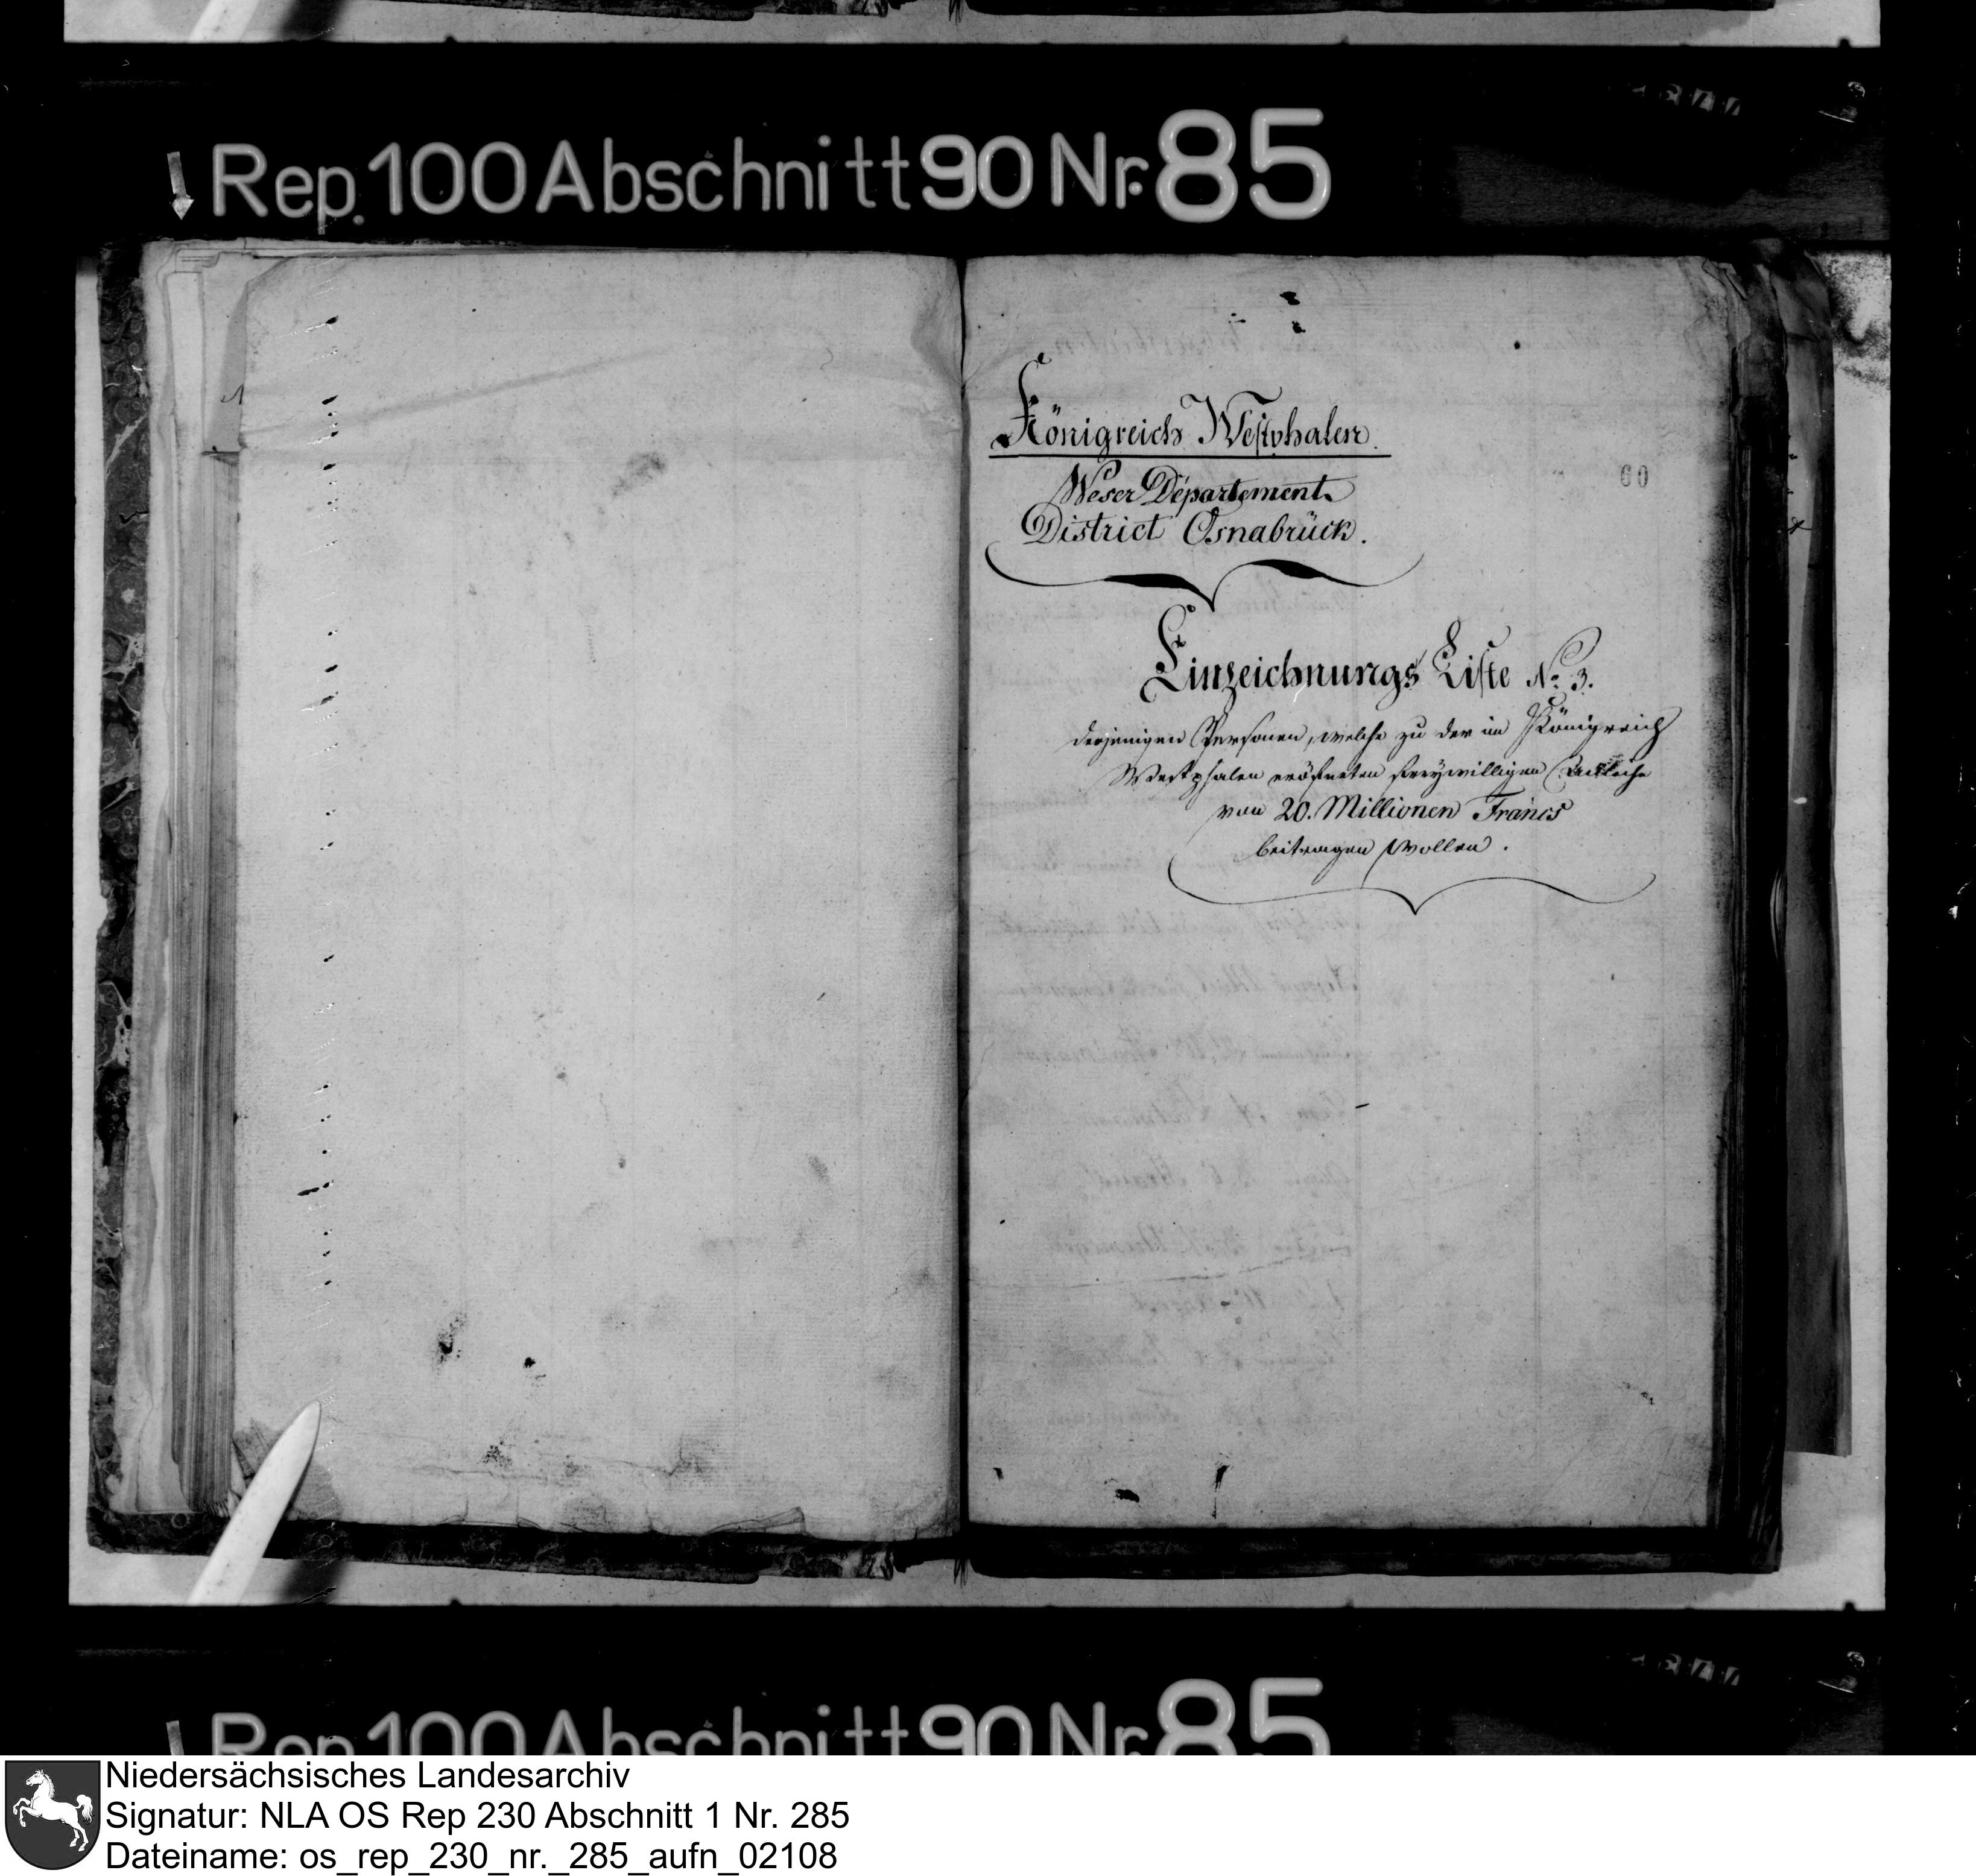 Rep. 100 Abschnitt 90 Nr. 85
Königreich Westphalen.
Weser Département
60
District Osnabrück.
Einzeichnungs Liste No. 3.
derjenigen Personen, welche zu der im Königreich
Westphalen eröfneten freywilligen Anleihe
von 20. Millionen Francs
beitragen wollen.
Rep. 100 Abschnitt 90 Nr. 85
Niedersächsisches Landesarchiv
Signatur: NLA OS Rep 230 Abschnitt 1 Nr. 285
Dateiname: os_rep_230_nr._285_aufn_02108